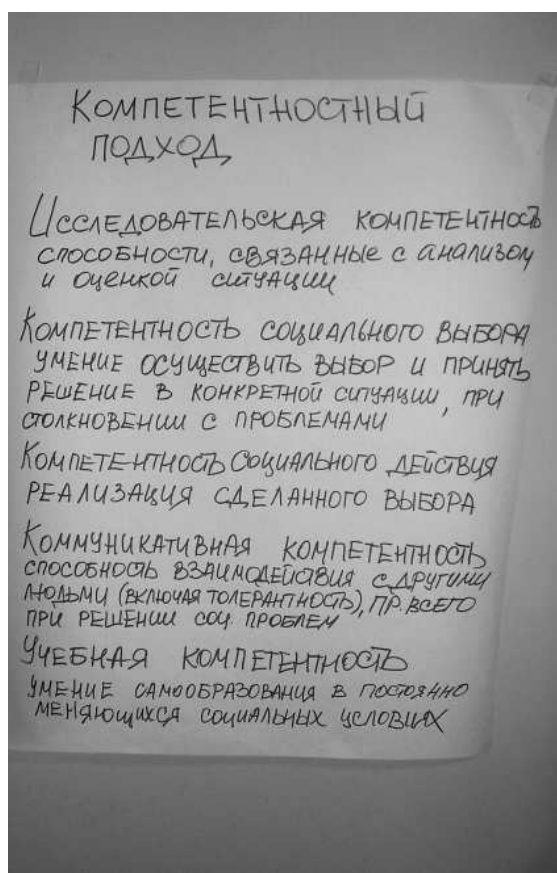 КОМПЕТЕНТНОСТНЫЙ
ПОДХОД
ИССЛЕДОВАТЕЛЬСКАЯ КОМПЕТЕНТНОСТЬ
СПОСОБНОСТИ, СВЯЗАННЫЕ С АНАЛИЗОМ
И ОЦЕНКОЙ СИТУАЦИИ
КОМПЕТЕНТНОСТЬ СОЦИАЛЬНОГО ВЫБОРА
УМЕНИЕ ОСУЩЕСТВИТЬ ВЫБОР И ПРИНЯТЬ
РЕШЕНИЕ В КОНКРЕТНОЙ СИТУАЦИИ, ПРИ
СТОЛКНОВЕНИИ С ПРОБЛЕМАМИ
КОМПЕТЕНТНОСТЬ СОЦИАЛЬНОГО ДЕЙСТВИЯ
РЕАЛИЗАЦИЯ СДЕЛАННОГО ВЫБОРА
КОММУНИКАТИВНАЯ КОМПЕТЕНТНОСТЬ
СПОСОБНОСТЬ ВЗАИМОДЕЙСТВИЯ С ДРУГИМИ
ЛЮДЬМИ (ВКЛЮЧАЯ ТОЛЕРАНТНОСТЬ), ПР. ВСЕГО
ПРИ РЕШЕНИИ СОЦ. ПРОБЛЕМ
УЧЕБНАЯ КОМПЕТЕНТНОСТЬ
УМЕНИЕ САМООБРАЗОВАНИЯ В ПОСТОЯННО
МЕНЯЮЩИХСЯ СОЦИАЛЬНЫХ УСЛОВИЯХ